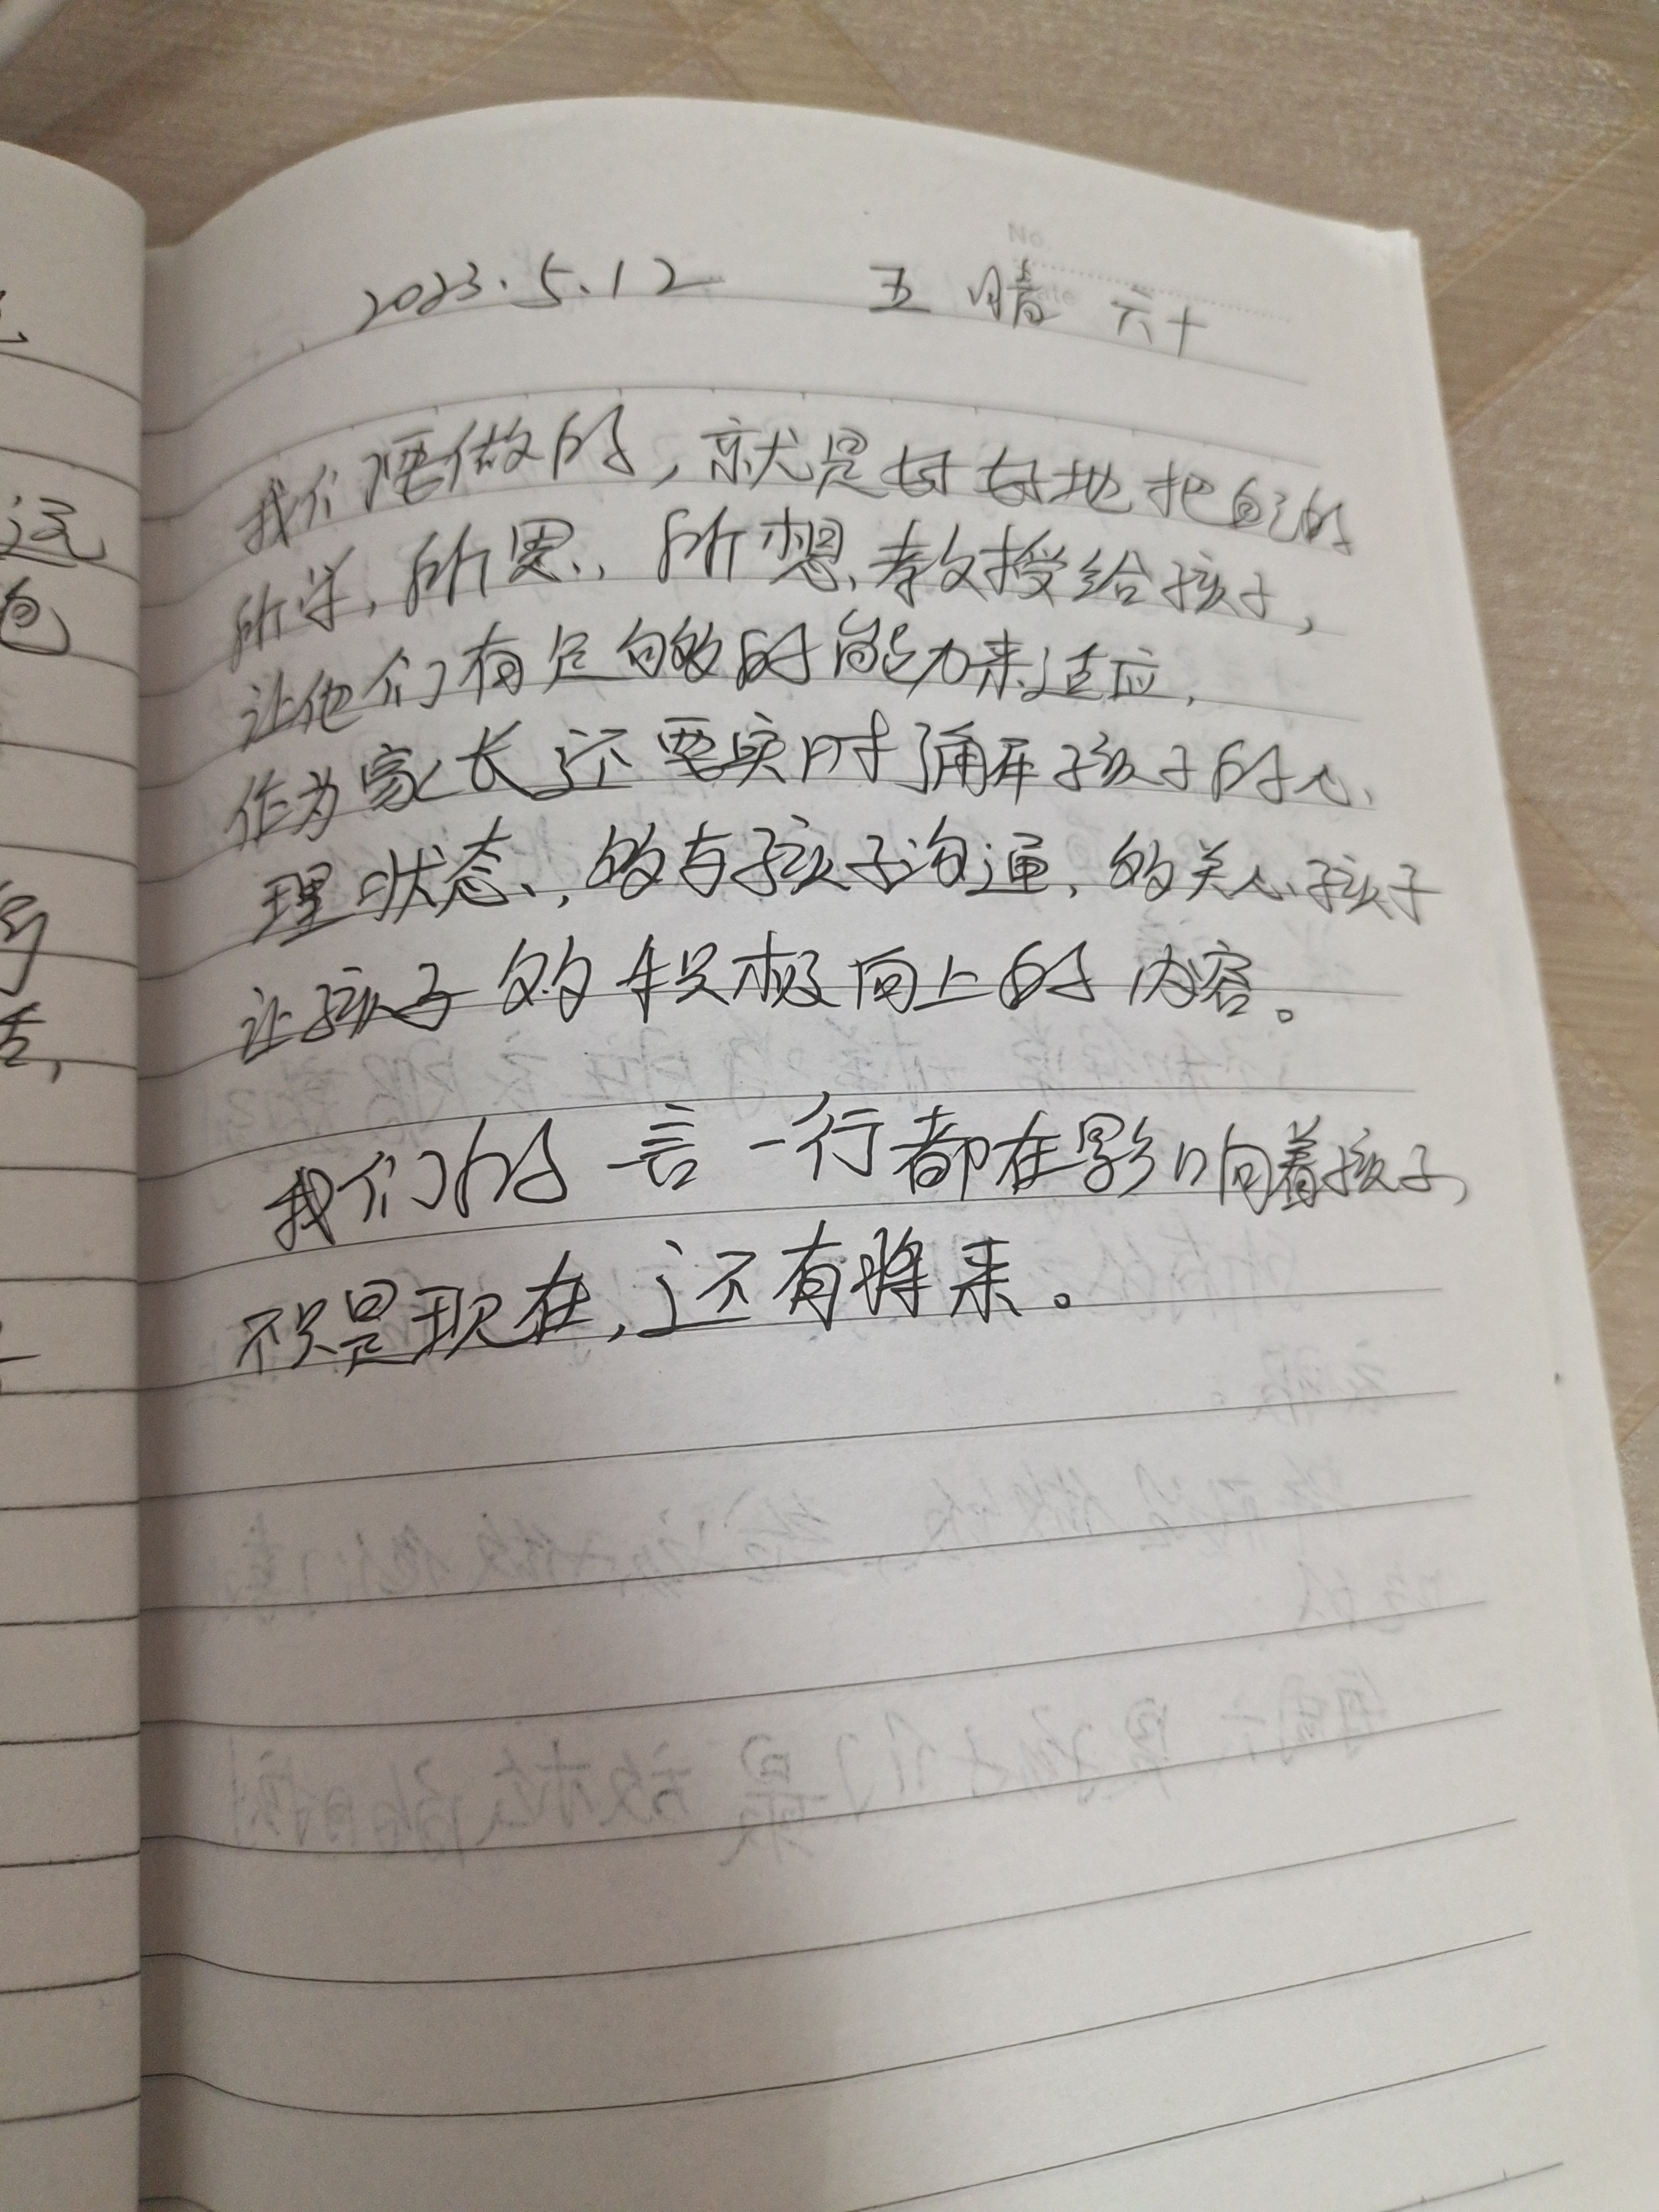 2023.5.12 五 晴 六十
我们要做的,就是好好地把自己的
所学,所思、所想、教授给孩子,
让他们有足够的能力来适应,
作为家长还要实时了解孩子的心
理状态、,多与孩子沟通,多关心孩子
让孩子多积极向上的内容。
我们的 言一行都在影响着孩子,
不只是现在,还有将来。